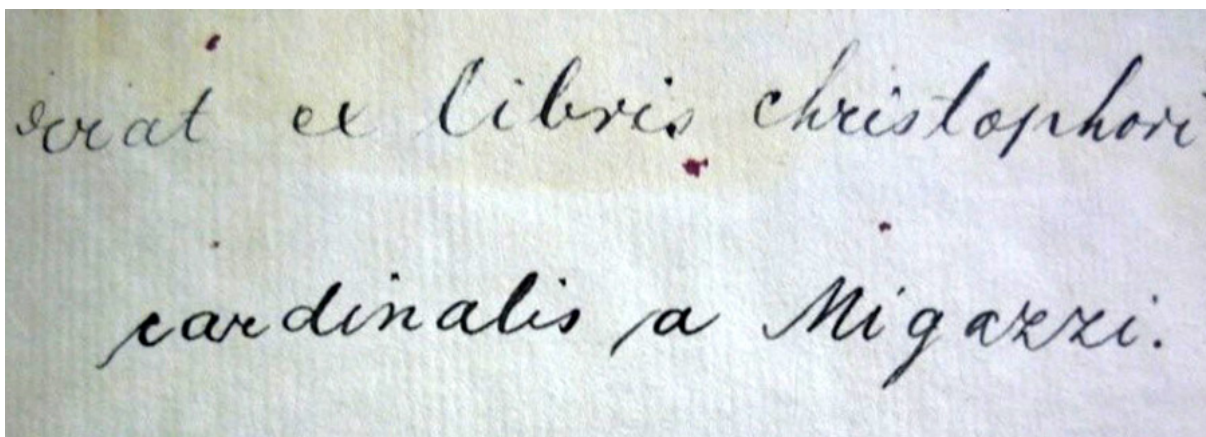 erat ex libris christophori
cardinalis a Migazzi.